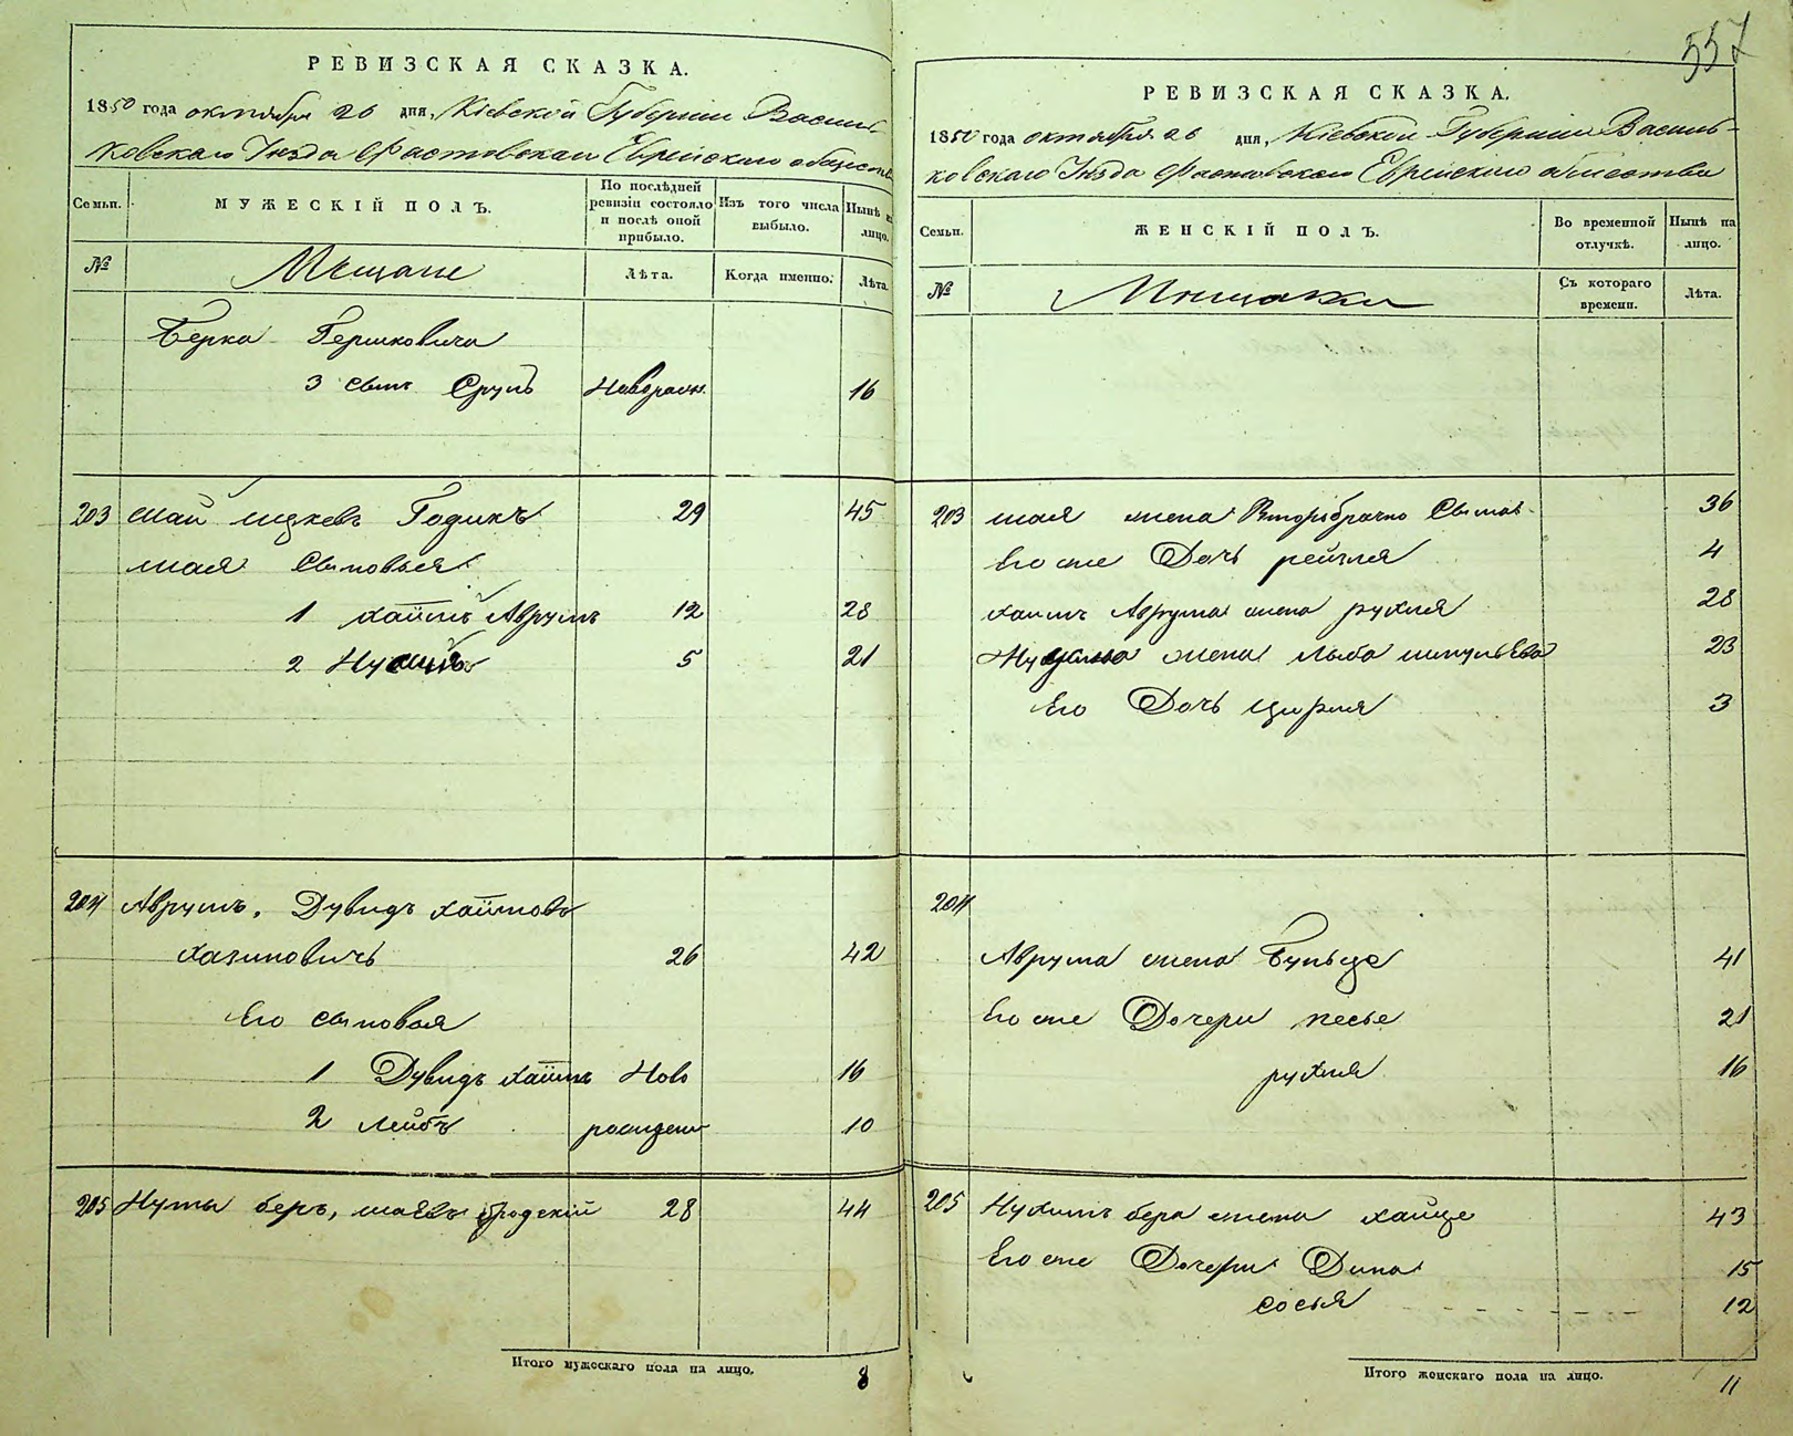 557
РЕВИЗСКАЯ СКАЗКА.
1850 года октября 26 дня, Кіевской Губерніи Василь-
ковскаго Уезда Фастовскаго Еврейского общества
Семьи.
МУЖЕСКІЙ ПОЛЪ.
По послѣдней ревизіи состояло и послѣ оной прибыло.
Изъ того числа выбыло.
Нынѣ на лицо.
№
Мещане
Лѣта.
Когда именно.
Лѣта.
Берка Гершковича
3 сынъ Срулъ Новорожд. 16
203 Годикъ 29 45
сыновья
1 Хаимъ Аврумъ 12 28
2 5 21
204 Аврумъ, Дувидъ Хаимовъ
Хазиновичъ 26 42
Его сыновья
1 Дувидъ Хаимъ Ново 16
2 Лейбъ рожденъ 10
205 беръ, бродскій 28 44
Итого мужескаго пола на лицо. 8
РЕВИЗСКАЯ СКАЗКА.
1850 года октября 26 дня, Кіевской Губерніи Василь-
ковскаго Уезда Фастовскаго Еврейского общества
Семьи.
ЖЕНСКІЙ ПОЛЪ.
Во временной отлучкѣ.
Нынѣ на лицо.
№
Мещанки
Съ котораго времени.
Лѣта.
203 жена Второбрачно 36
Его же Дочь рейзля 4
Хаимъ Аврума жена рухля 28
жена 23
Его Дочь цирля 3
204
Аврума жена 41
Его же Дочери песье 21
рухля 16
205 бера жена хайце 43
Его же Дочери Дина 15
сосья 12
Итого женскаго пола на лицо. 11